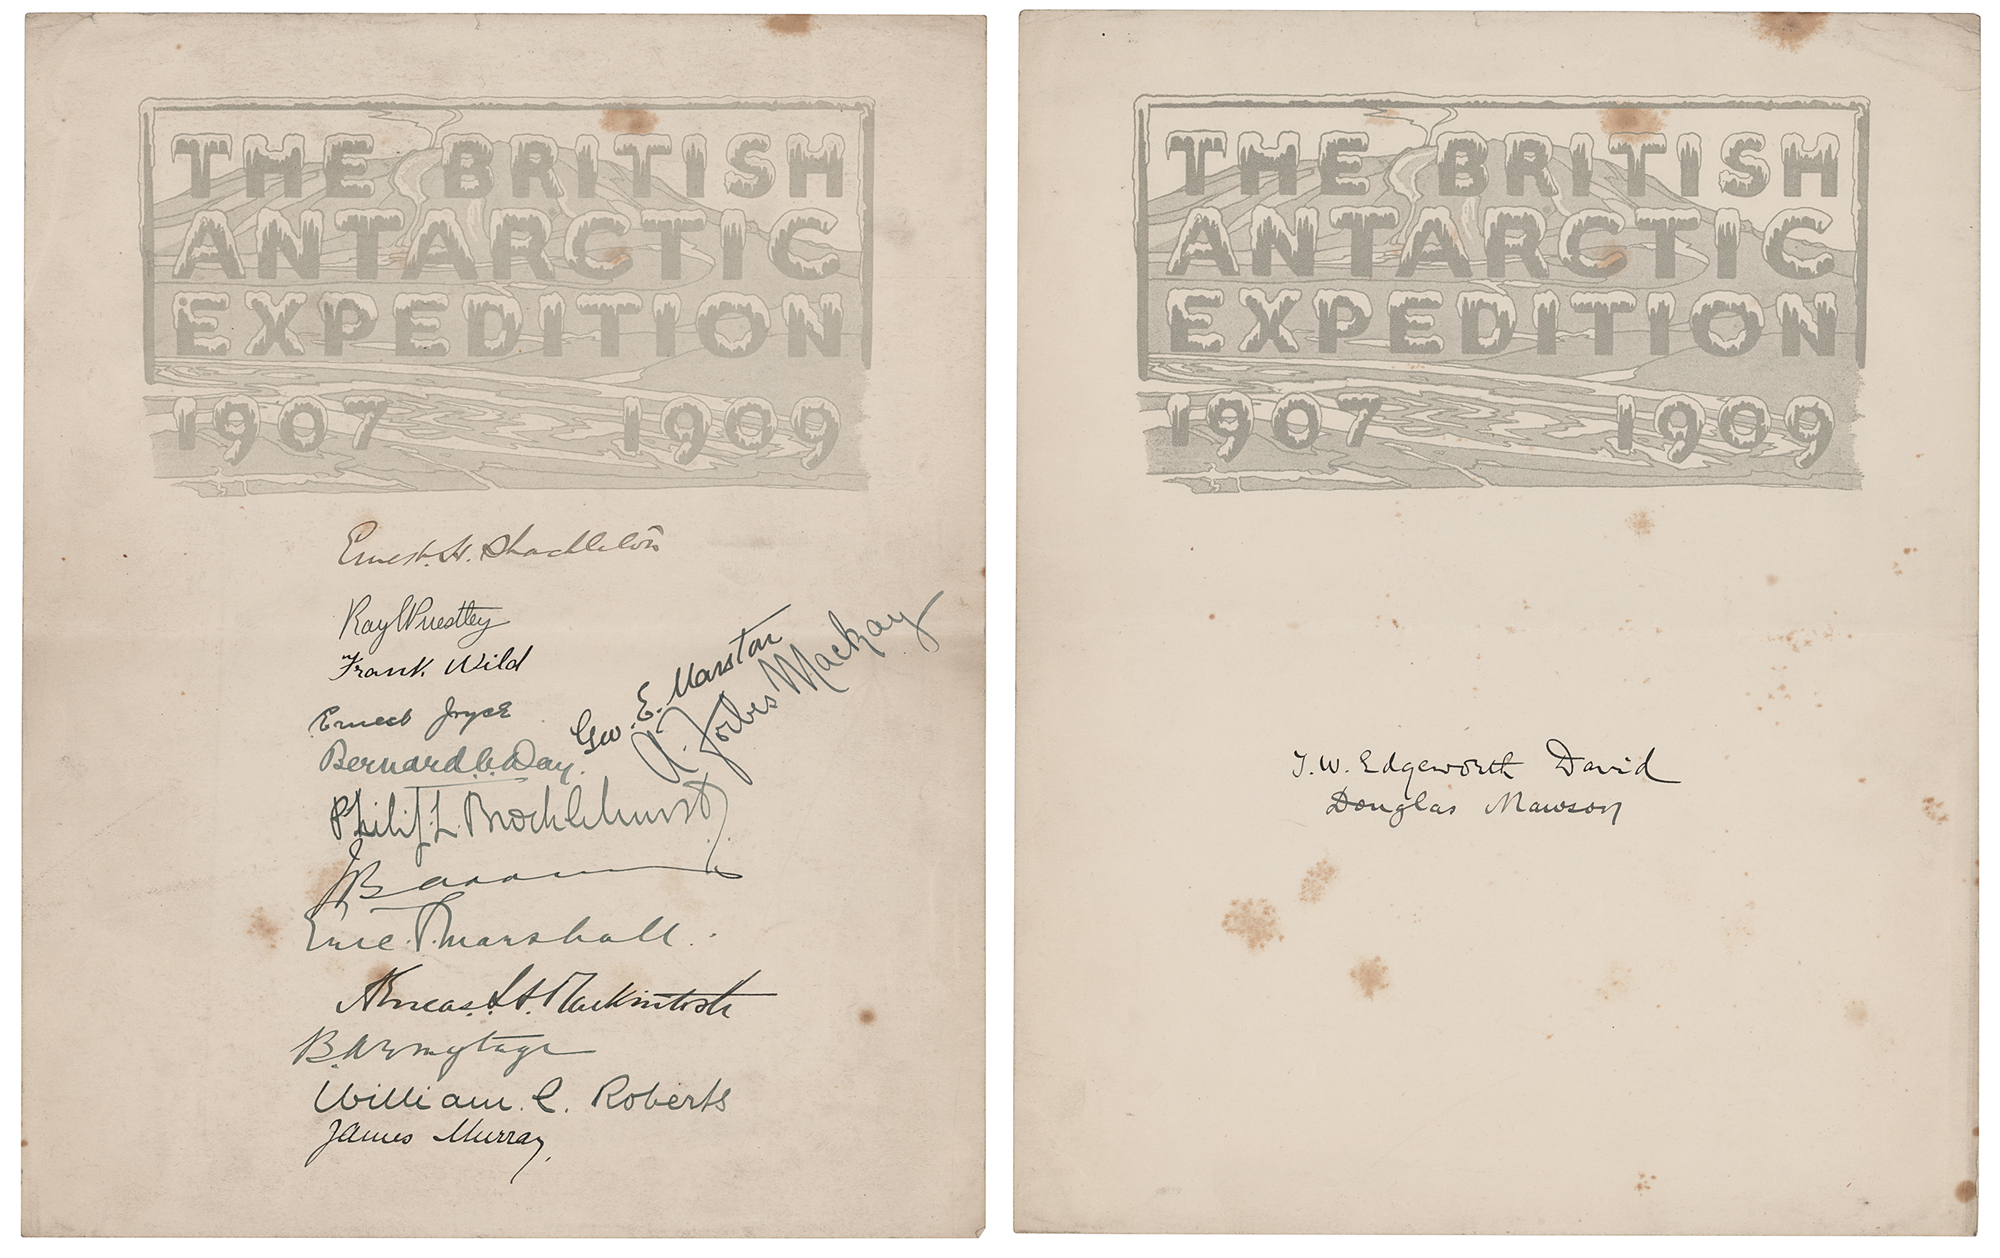 THE BRITISH
ANTARCTIC
EXPEDITION
1907 1909
Ernest. H. Shackleton
Ray E Priestley
Frank Wild
Geo. E. Marston
A. Forbes Mackay
Ernest Joyce
Bernard. C. Day.
Philip L. Brocklehurst
JB Adams
Eric. S. Marshall.
Aeneas. L. A. Mackintosh
B. Armytage
William. C. Roberts
James Murray.
THE BRITISH
ANTARCTIC
EXPEDITION
1907 1909
T. W. Edgeworth David
Douglas Mawson